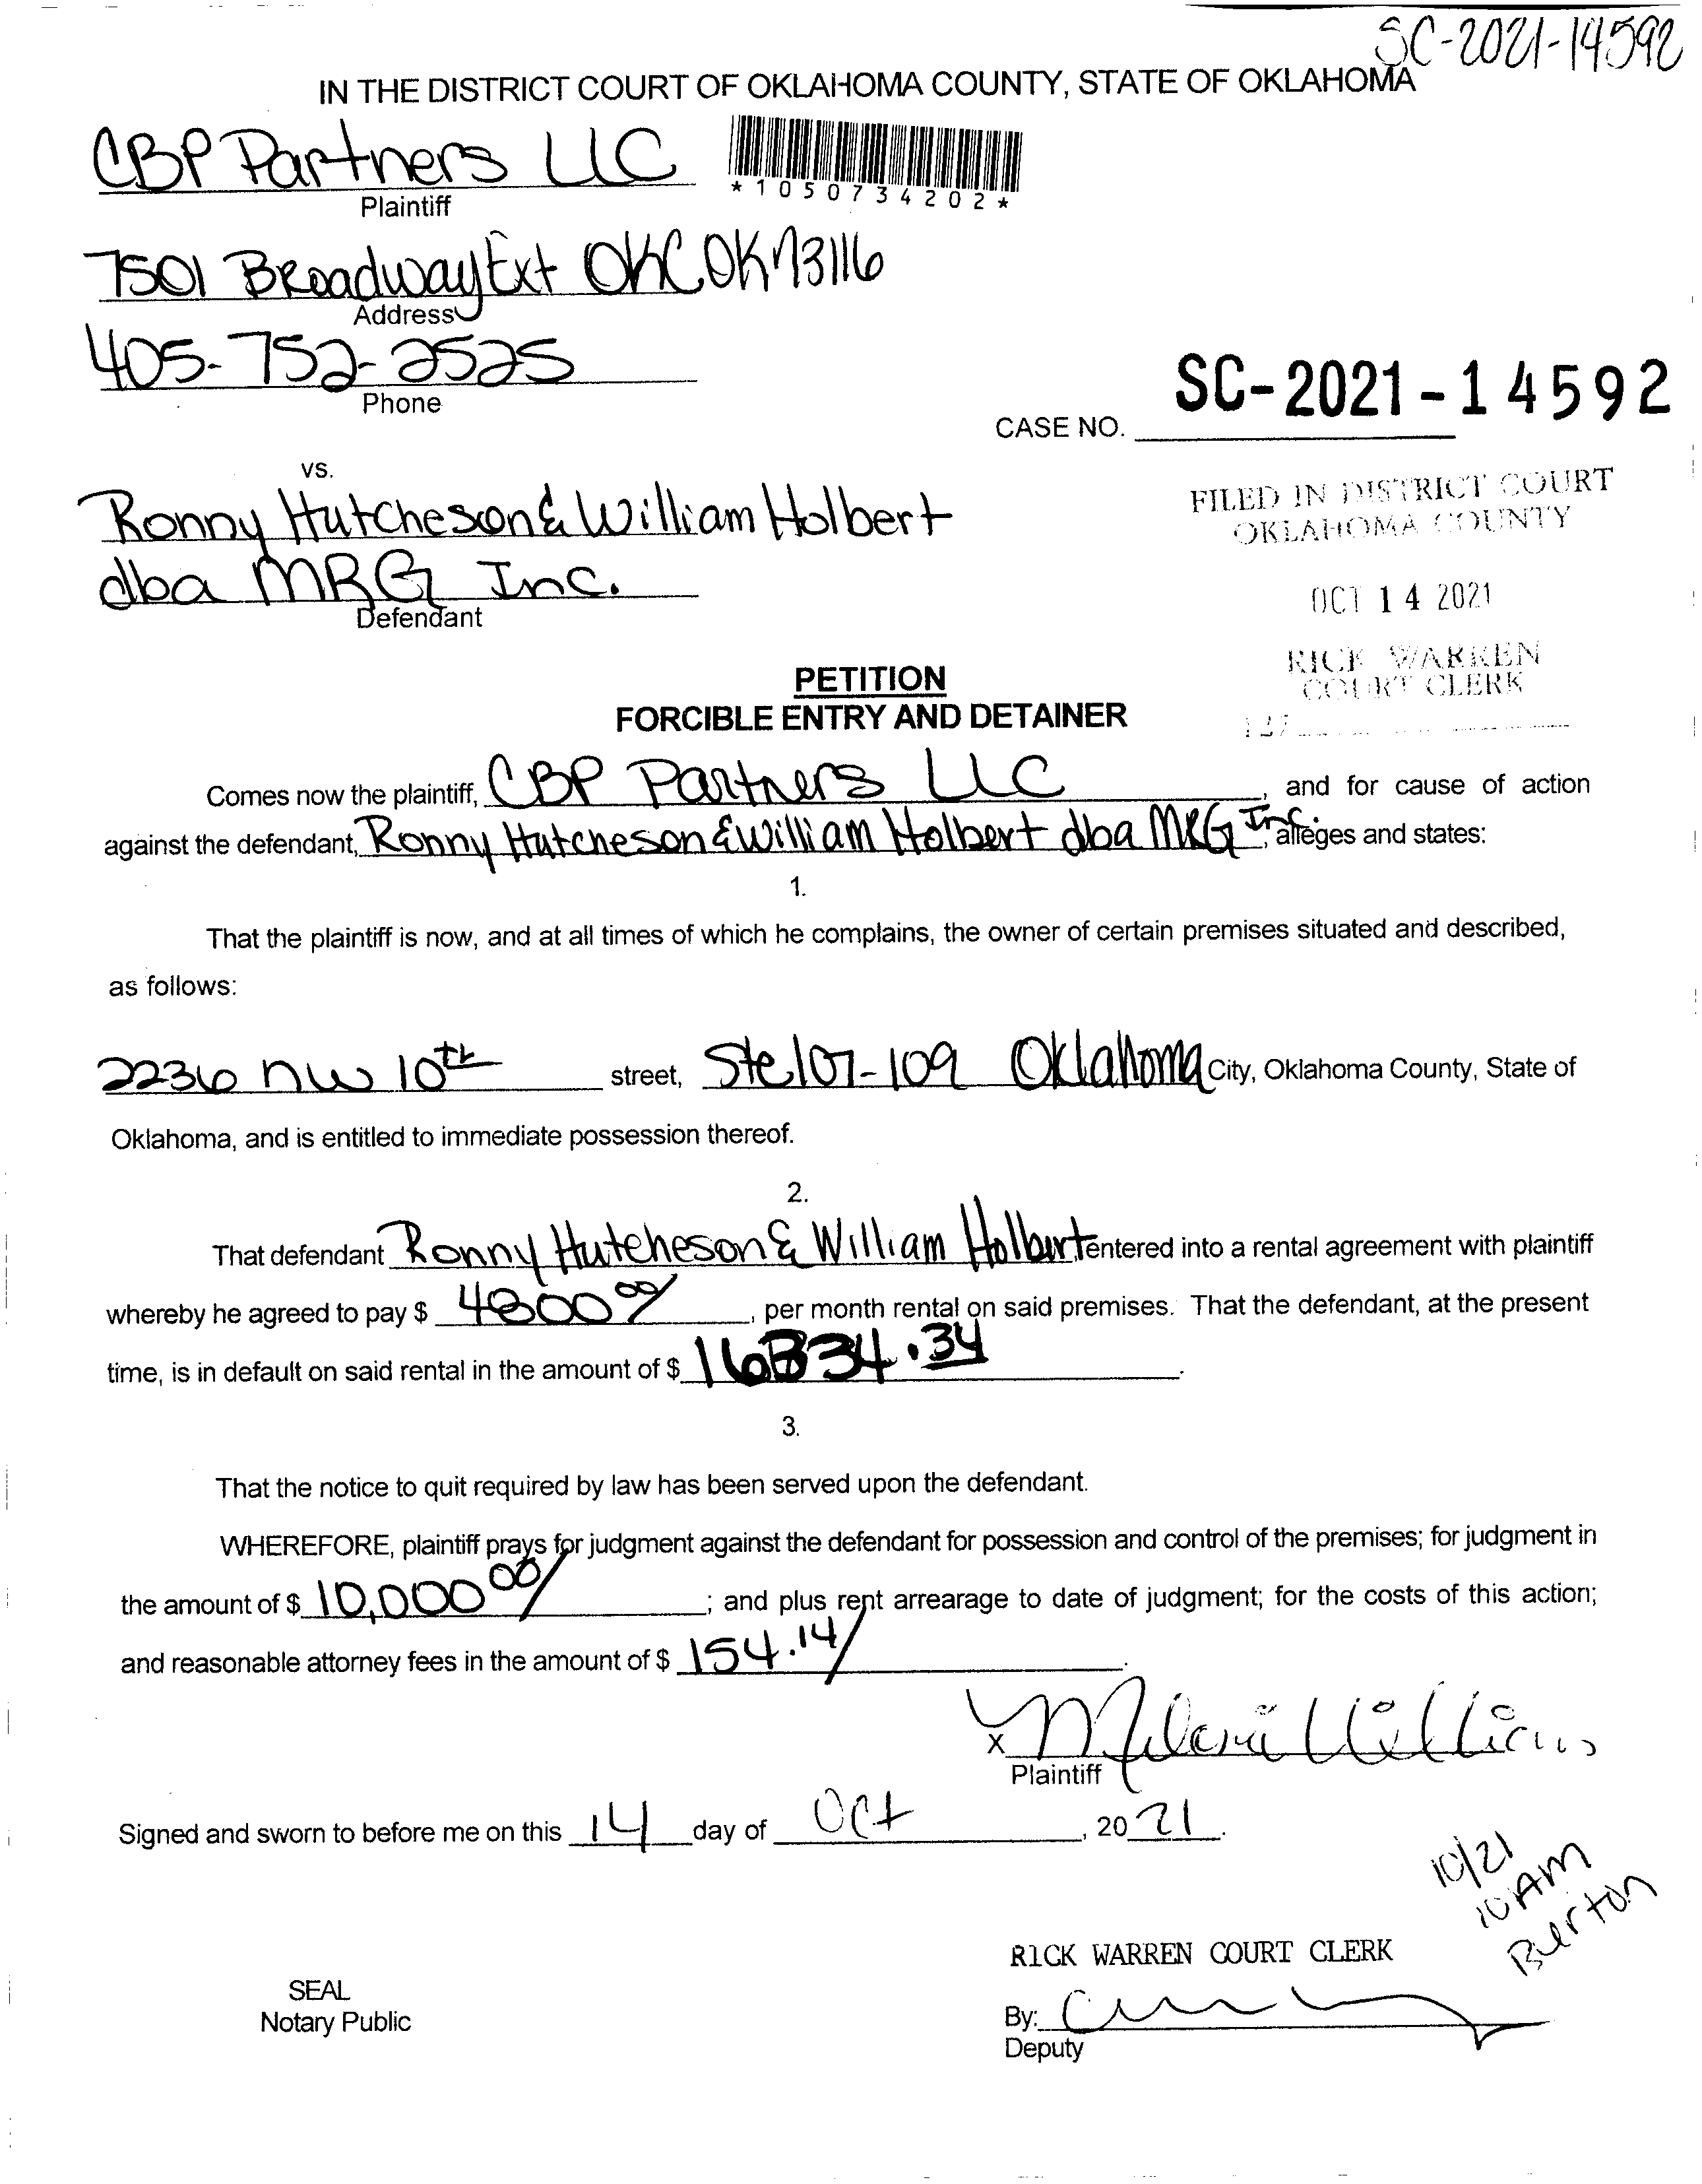 SC-2021-14592
IN THE DISTRICT COURT OF OKLAHOMA COUNTY, STATE OF OKLAHOMA
CBP Partners LLC
*1050734202*
Plaintiff
7501 Broadway Ext OKC OK 73116
Address
405-752-2525
Phone
SC-2021-14592
CASE NO.
vs.
Ronny Hutcheson & William Holbert
dba MRG Inc.
Defendant
FILED IN DISTRICT COURT
OKLAHOMA COUNTY
OCT 14 2021
RICK WARREN
COURT CLERK
PETITION
FORCIBLE ENTRY AND DETAINER
Comes now the plaintiff, CBP Partners LLC, and for cause of action
against the defendant, Ronny Hutcheson & William Holbert dba MRG Inc., alleges and states:
1.
That the plaintiff is now, and at all times of which he complains, the owner of certain premises situated and described,
as follows:
2236 NW 10th street, Ste 107-109 Oklahoma City, Oklahoma County, State of
Oklahoma, and is entitled to immediate possession thereof.
2.
That defendant Ronny Hutcheson & William Holbert, entered into a rental agreement with plaintiff
whereby he agreed to pay $ 4800 00/, per month rental on said premises. That the defendant, at the present
time, is in default on said rental in the amount of $ 16834.34.
3.
That the notice to quit required by law has been served upon the defendant.
WHEREFORE, plaintiff prays for judgment against the defendant for possession and control of the premises; for judgment in
the amount of $ 10,000 00/; and plus rent arrearage to date of judgment; for the costs of this action;
and reasonable attorney fees in the amount of $ 154.14/.
X Melanie Williams
Plaintiff
Signed and sworn to before me on this 14 day of Oct, 2021.
10/21
10AM
Burton
RICK WARREN COURT CLERK
SEAL
Notary Public
By:
Deputy